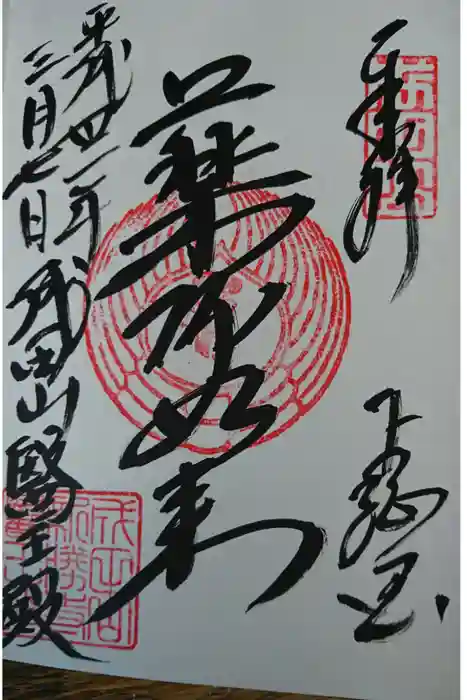 奉拝
下総国
薬師如来
平成廿一年
三月七日
成田山醫王殿